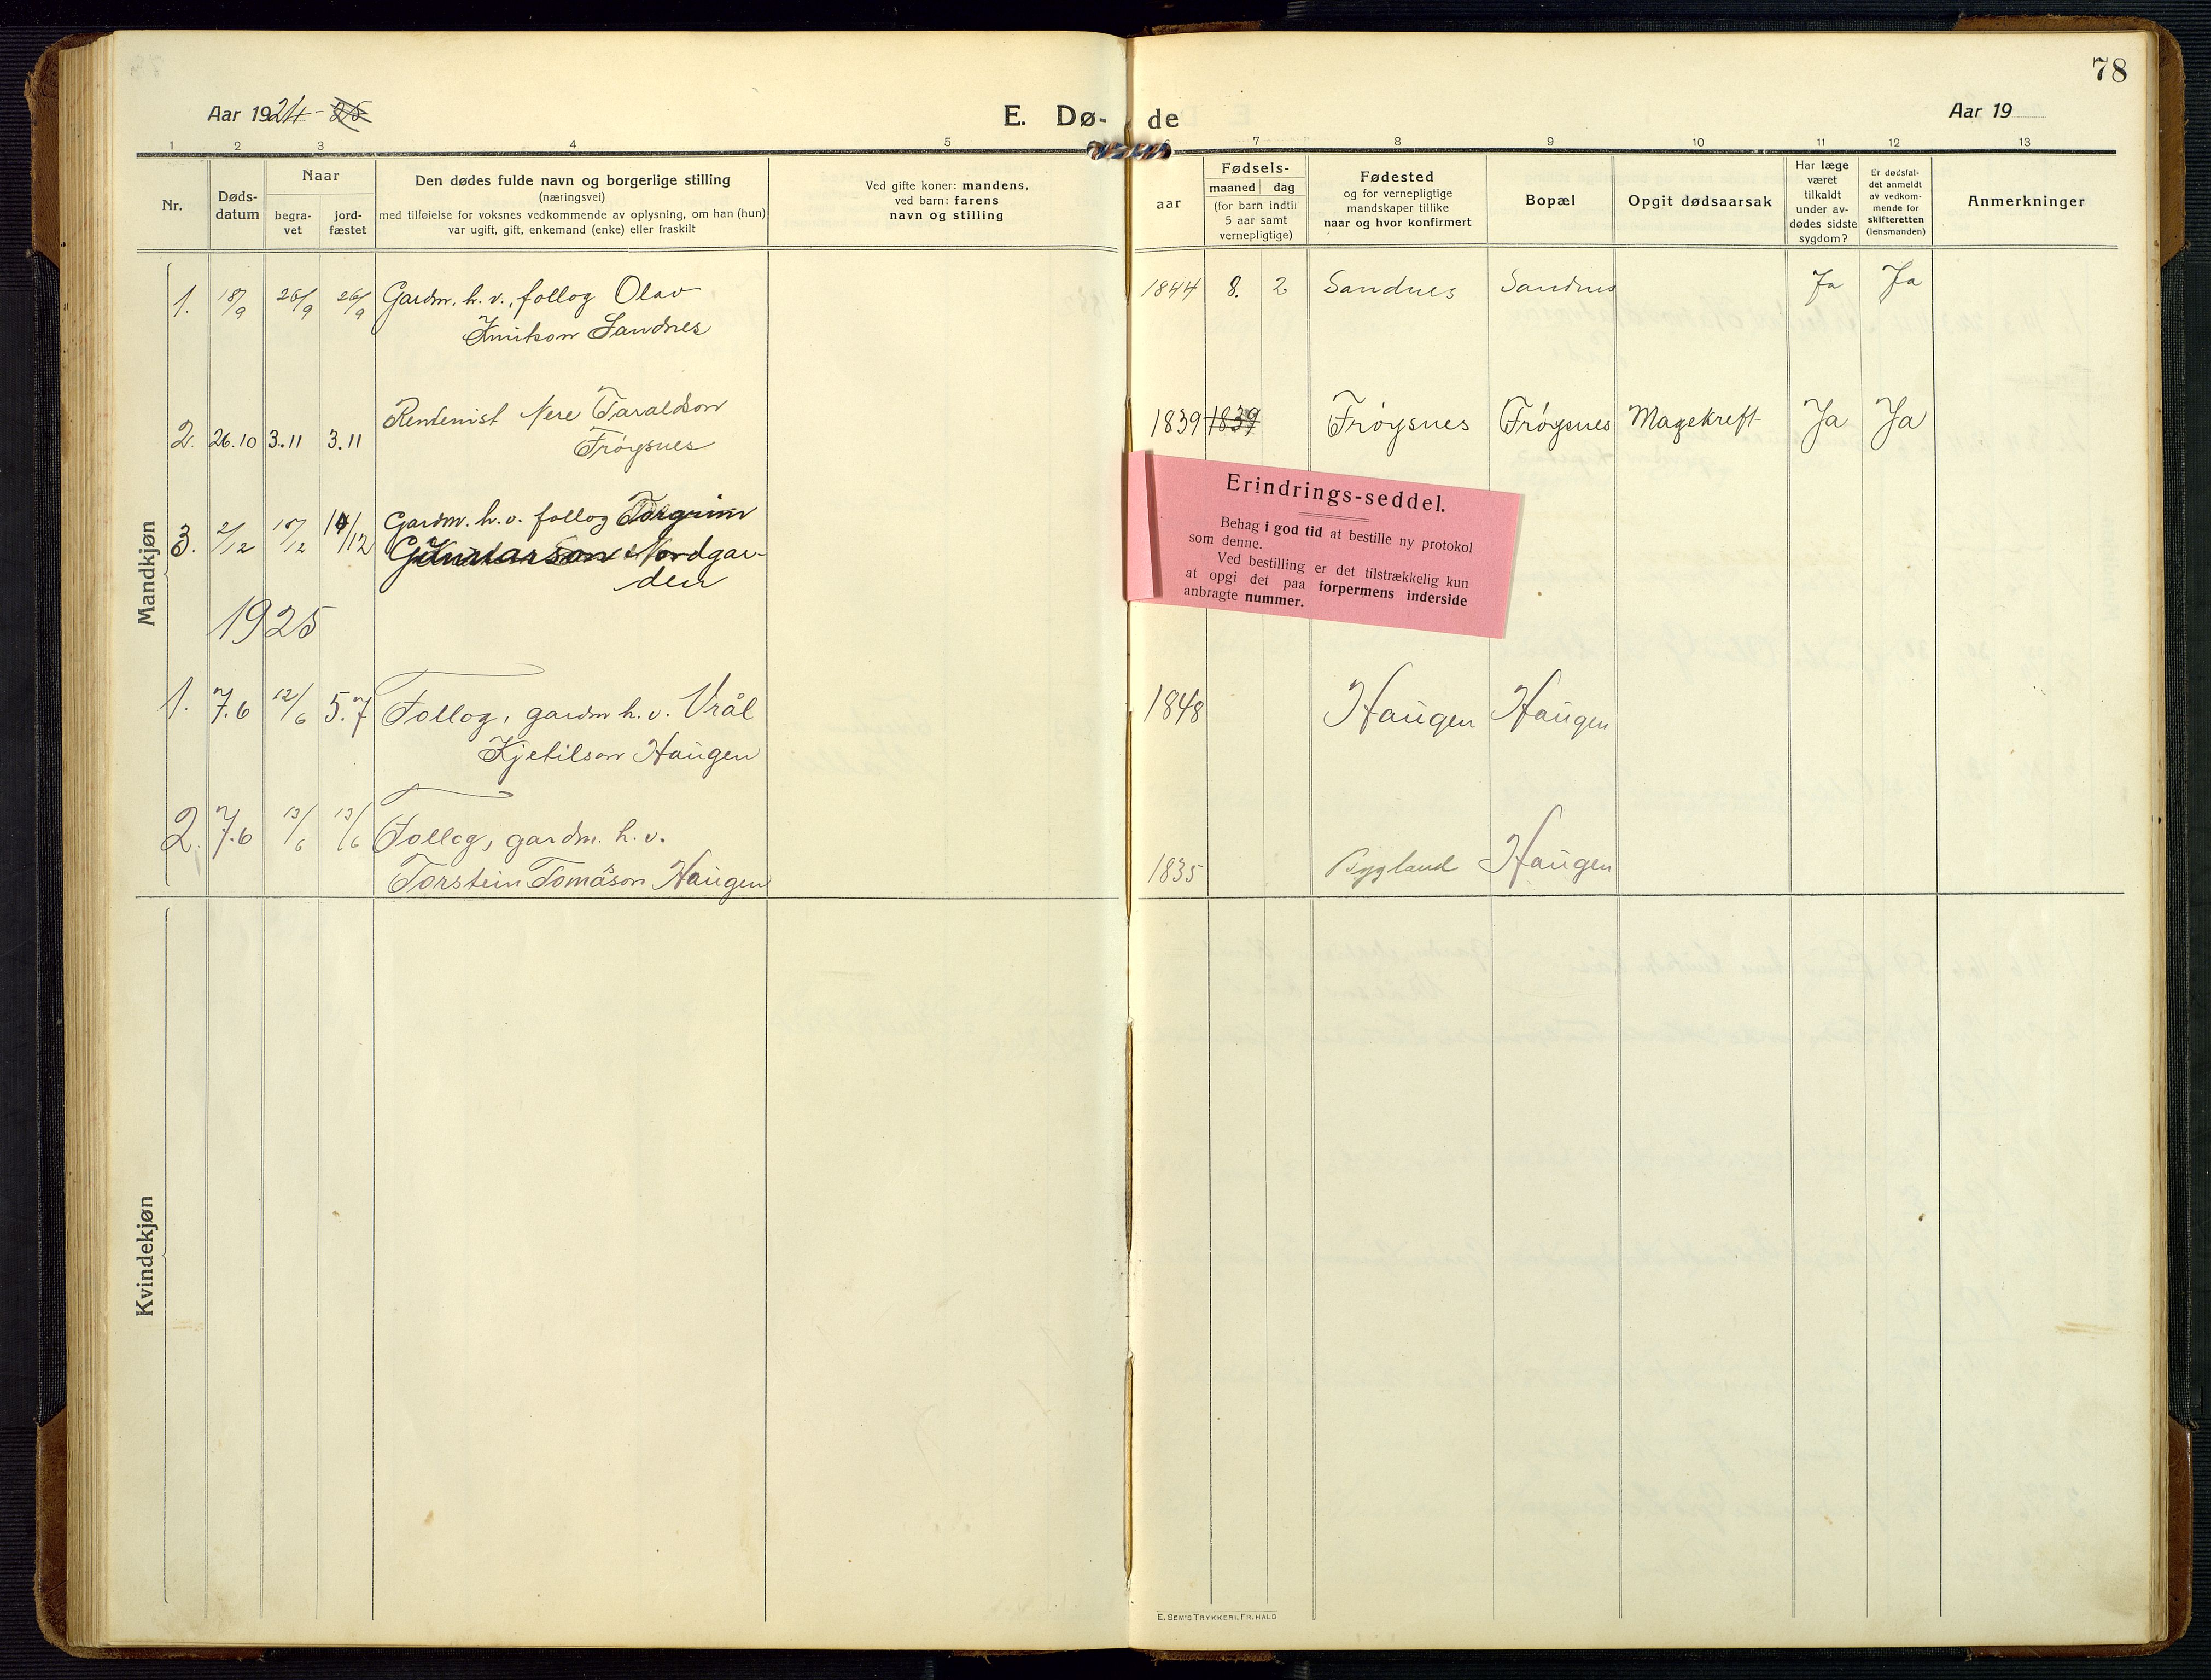 78
Aar 1924 - 25
E. Dø- de
Aar 19
1 2 3 4 5 7 8 9 10 11 12 13
Nr.
Døds-
datum
Naar
begra-
vet
jord-
fæstet
Den dødes fulde navn og borgerlige stilling
(næringsvei)
med tilføielse for voksnes vedkommende av oplysning, om han (hun)
var ugift, gift, enkemand (enke) eller fraskilt
Ved gifte koner: mandens,
ved barn: farens
navn og stilling
aar
Fødsels-
maaned dag
(for barn indtil
5 aar samt
vernepligtige)
Fødested
og for vernepligtige
mandskaper tillike
naar og hvor konfirmert
Bopæl
Opgit dødsaarsak
Har læge
været
tilkaldt
under av-
dødes sidste
sygdom?
Er dødsfal-
det anmeldt
av vedkom-
mende for
skifteretten
(lensmanden)
Anmerkninger
Mandkjøn
1. 18/9 26/9 26/9 Gardm. h. v., follog Olav 1844 8. 2 Sandnes Sandnes Ja Ja
Knutson Sandnes
Rentenist Nere Taraldson
2. 26.10 3.11 3.11 Frøysnes 1839 1839 Frøysnes Frøysnes Magekreft Ja Ja
Gardm. h. v. follog Torgrim
3. 2/12 /12 /12 Gunnarson Nordgar-
den
1925
Erindrings-seddel.
Behag i god tid at bestille ny protokol
som denne.
Ved bestilling er det tilstrækkelig kun
at opgi det paa forpermens inderside
anbragte nummer.
1. 7.6 12/6 5.7 Follog, gardm h. v. Vrål 1848 Haugen Haugen
Kjetilson Haugen
2. 7.6 13/6 13/6 Follog, gardm. h. v.
Torstein Tomåson Haugen 1835 Bygland Haugen
Kvindekjøn
E. SEM'S TRYKKERI, FR. HALD